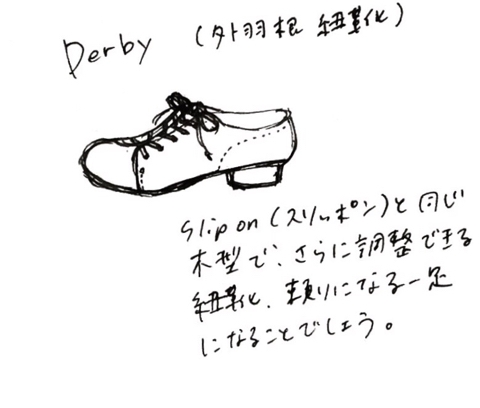 Derby （外羽根 紐革化）
slip on（スリッポン）と同じ
木型で、さらに調整できる
紐革化、頼りになる一足
になることでしょう。